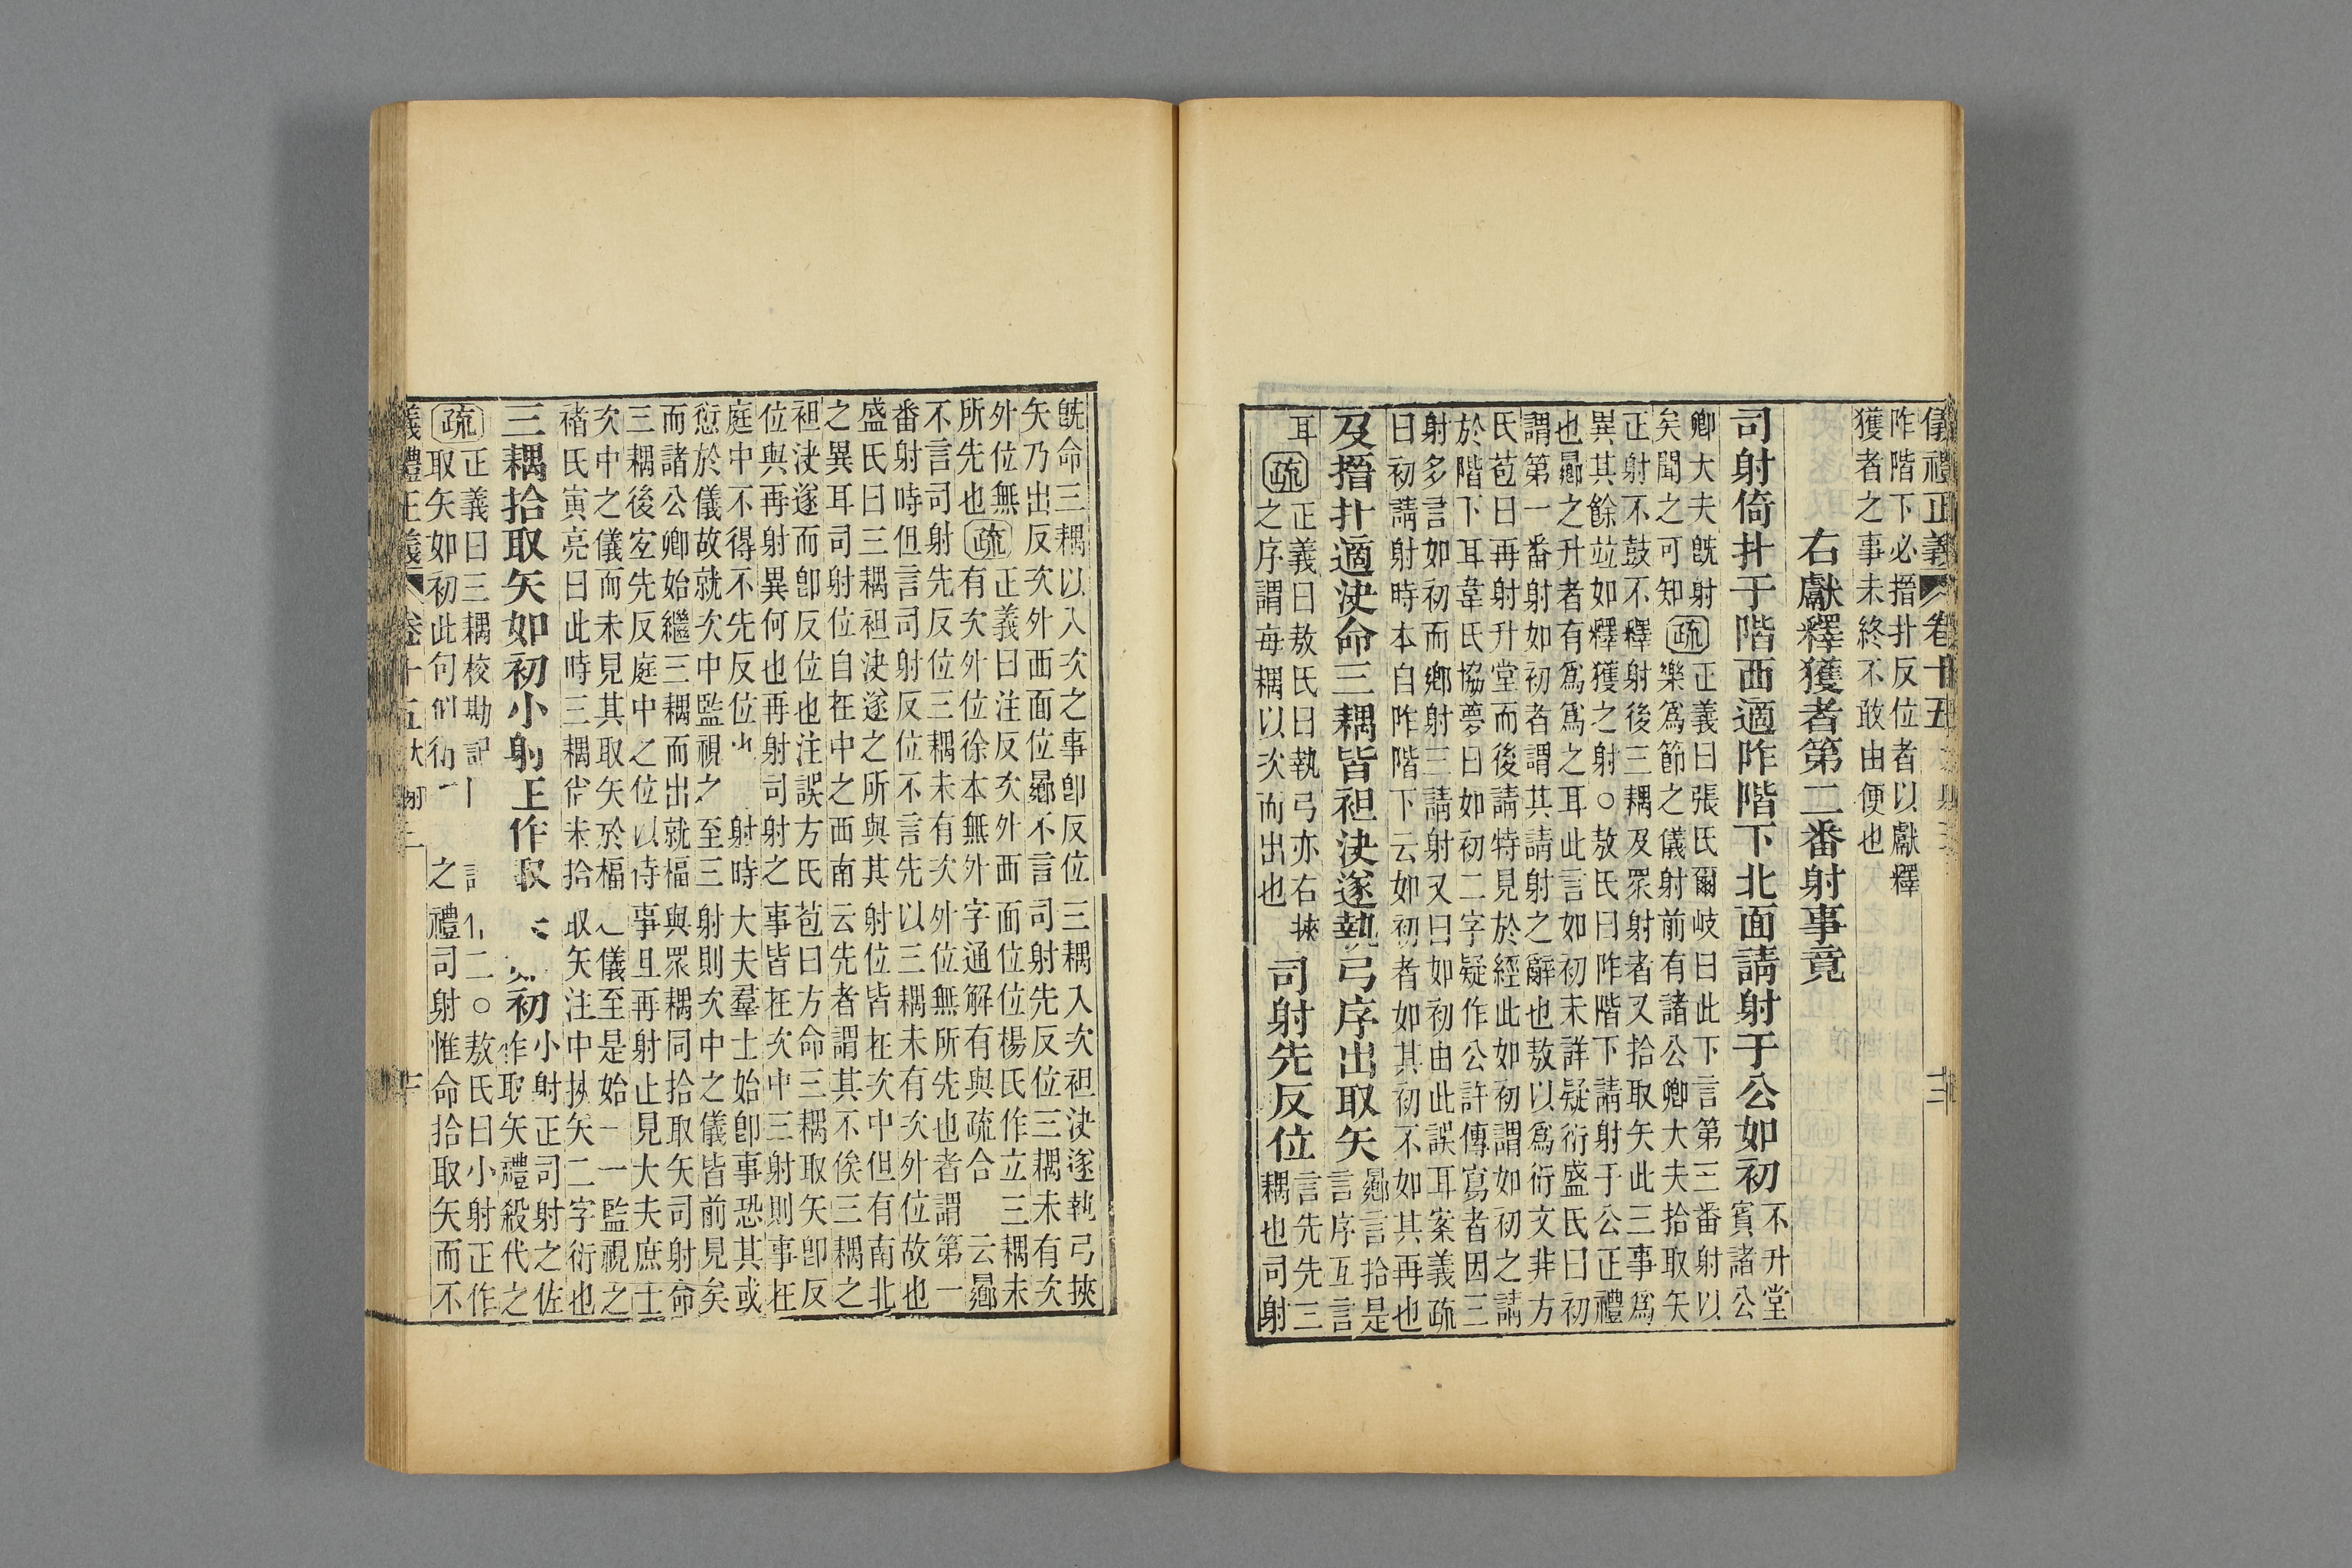 儀禮正義 卷十五
阼階下必搢扑反位者以獻釋
獲者之事未終不敢由便也
右獻釋獲者第二番射事竟
司射倚扑于階西適阼階下北面請射于公如初
不升堂
賓諸公
卿大夫旣射
矣聞之可知
疏
正義曰張氏爾岐曰此下言第三番射以
樂爲節之儀射前有諸公卿大夫拾取矢
正射不鼓不釋射後三耦及眾射者又拾取矢此三事爲
異其餘竝如釋獲之射○敖氏曰阼階下請射于公正禮
也曏之升者有爲爲之耳此言如初未詳疑衍盛氏曰初
謂第一番射如初者謂其請射之辭也敖以爲衍文非方
氏苞曰再射升堂而後請特見於經此如初謂如初之請
於階下耳韋氏協夢曰如初二字疑作公許傳寫者因三
射多言如初而鄉射三請射又曰如初由此誤耳案義疏
曰初請射時本自阼階下云如初者如其初不如其再也
反搢扑適決命三耦皆袒決遂執弓序出取矢
曏言拾是
言序互言
耳
疏
正義曰敖氏曰執弓亦右挾
之序謂每耦以次而出也
司射先反位
言先先三
耦也司射
旣命三耦以入次之事卽反位三耦入次袒決遂執弓挾
矢乃出反次外西面位曏不言司射先反位三耦未有次
外位無
所先也
疏
正義曰注反次外西面位位楊氏作立三耦未
有次外位徐本無外字通解有與疏合 云曏
不言司射先反位三耦未有次外位無所先也者謂第一
番射時但言司射反位不言先以三耦未有次外位故也
盛氏曰三耦袒決遂之所與其射位皆在次中但有南北
之異耳司射位自在中之西南云先者謂其不俟三耦之
袒決遂而卽反位也注誤方氏苞曰方命三耦取矢卽反
位與再射異何也再射司射之事皆在次中三射則事在
庭中不得不先反位 射時大夫羣士始卽事恐其或
愆於儀故就次中監視之至三射則次中之儀皆前見矣
而諸公卿始繼三耦而出就楅與眾耦同拾取矢司射命
三耦後宐先反庭中之位以待事且再射止見大夫庶士
次中之儀而未見其取矢於楅之儀至是始一一監視之
禇氏寅亮曰此時三耦皆未拾取矢注中挾矢二字衍也
三耦拾取矢如初小射正作取矢如初
小射正司射之佐
作取矢禮殺代之
疏
正義曰三耦校勘記 二○敖氏曰小射正作
取矢如初此句似衍 之禮司射惟命拾取矢而不
儀禮正義 卷十五